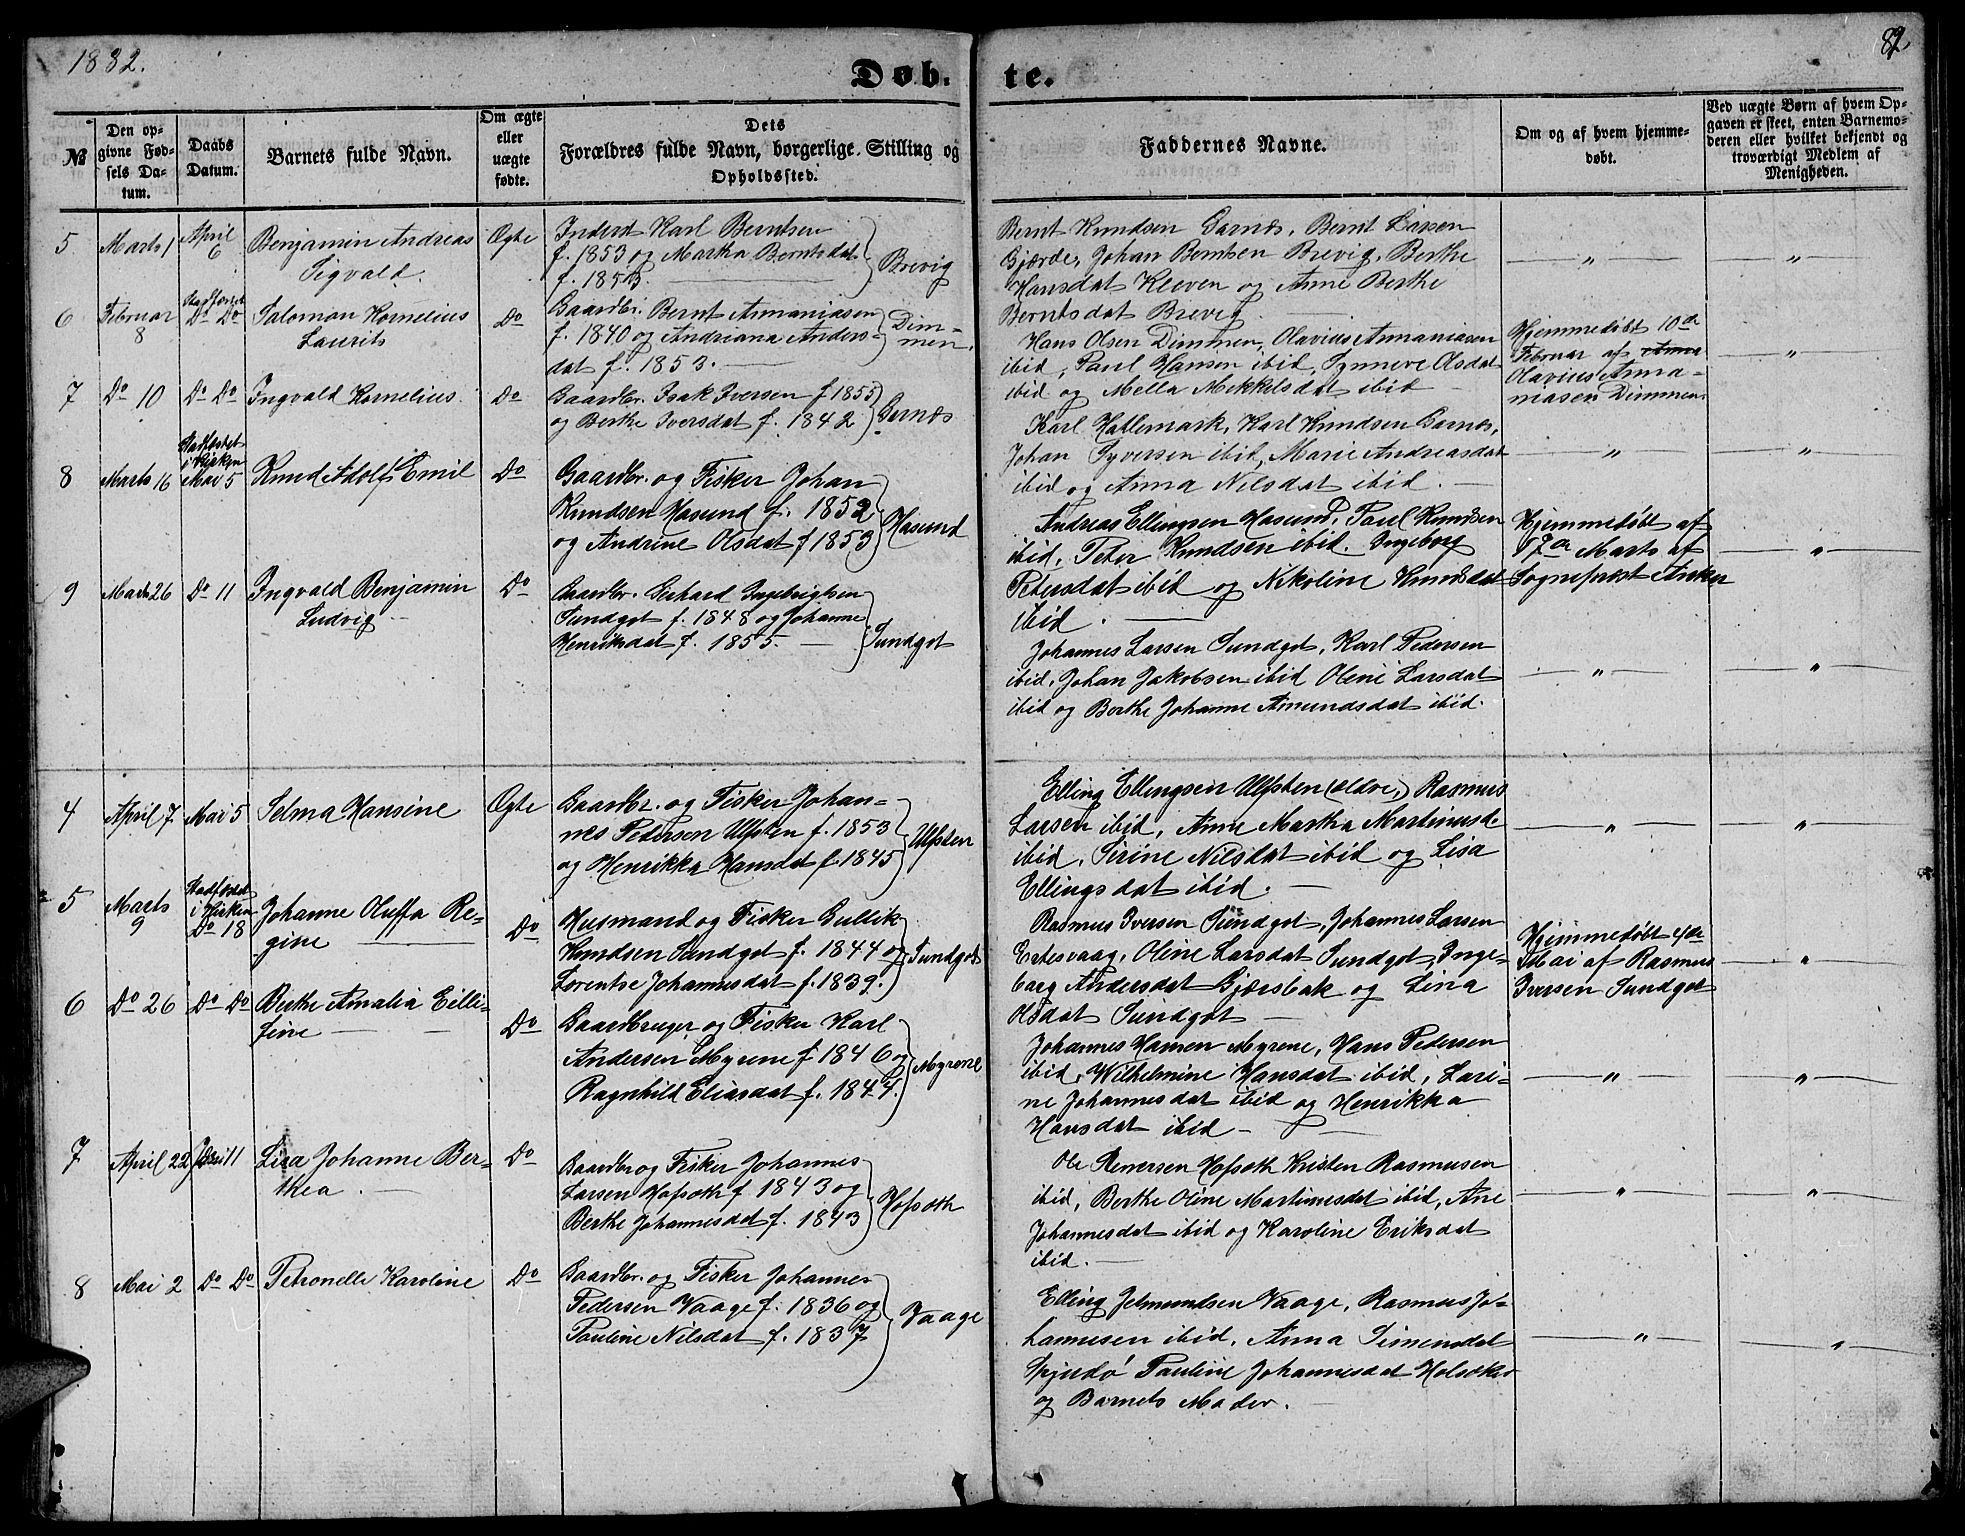 1882.
82.
Døb-te.
№
Den opgivne Fødsels Datum.
Daabs Datum.
Barnets fulde Navn.
Om ægte eller uægte fødte.
Dets Forældres fulde Navn, borgerlige Stilling og Opholdssted.
Faddernes Navne.
Om og af hvem hjemmedøbt.
Ved uægte Børn af hvem Opgaven er skeet, enten Barnemoderen eller hvilket bekjendt og troværdigt Medlem af Menigheden.
5 Marts 1 April 6 Benjamin Andreas Sigvald. Ægte
Inderst Karl Berntsen
f. 1853 og Martha Berntsdat
f. 1853.
Brevig
Bernt Knudsen Garnes, Bernt Larsen
Gjærde, Johan Berntsen Brevig, Berthe
Hansdat Kleven og Anne Berthe
Berntsdat Brevig
6 Februar 8 Stadfæstet Do Do Salomon Kornelius Laurits Do
Gaardbr. Bernt Annaniasen
f. 1840 og Andriana Anders-
dat f. 1853.
Dim-
men.
Hans Olsen Dimmen, Olavius Annaniasen
ibid, Paul Hansen ibid, Synneve Olsdat
ibid og Mella Mikkelsdat ibid
Hjemmedøbt 10de
Februar af Anna
Olavius Anna-
niasen Dimmen.
7 Do 10 Do Do Ingvald Kornelius. Do
Gaardbr. Isak Iversen f 1855
og Berthe Iversdat f. 1842
Garnes
Karl Hallemark, Karl Knudsen Garnes,
Johan Syversen ibid, Marie Andreasdat
ibid og Anna Nilsdat ibid.
8 Marts 16 Stadfæstet i Kirken Mai 5 Knud Adolf Emil Do
Gaardbr. og Fisker Johan
Knudsen Hasund f. 1852
og Andrine Olsdat f 1853
Hasund
Andreas Ellingsen Hasund, Paul Knudsen
ibid, Peter Knudsen ibid. Ingeborg
Petersdat ibid og Nikoline Knudsdat
ibid.
Hjemmedøbt af
17de Marts af
Sogneprest Anker
9 Marts 26 Do 11 Ingvald Benjamin Ludvig Do
Gaardbr. Gerhard Ingebrigtsen
Sundgot f. 1848 og Johanne
Henriksdat f. 1855.
Sundgot
Johannes Larsen Sundgot, Karl Pedersen
ibid, Johan Jakobsen ibid Oline Larsdat
ibid og Berthe Johanne Amundsdat ibid.
4 April 7 Mai 5 Selma Hansine Ægte
Gaardbr. og Fisker Johan-
nes Pedersen Ulfsten f. 1853
og Henrikka Hansdat f. 1845
Ulfsten
Elling Ellingsen Ulfsten (ældre,) Rasmus
Larsen ibid, Anne Martha Martinusd
ibid, Sirine Nilsdat ibid og Lisa
Ellingsdat ibid.
5 Marts 9 Stadfæstet i Kirken Do 18 Johanne Oluffa Re-
gine Do
Husmand og Fisker Gullik
Knudsen Sundgot f. 1844 og
Lorentse Johannesdat f. 1839.
Sundgot
Rasmus Iversen Sundgot, Johannes Larsen
Eitesvaag, Oline Larsdat Sundgot, Inge-
borg Andersdat Gjærsbak og Lina
Olsdat Sundgot
Hjemmedøbt 4de
Mai af Rasmus
Iversen Sundgot
6 Do 26 Do Do Berthe Amalia Elli-
sine Do
Gaardbruger og Fisker Karl
Andersen Myrene f 1846 og
Ragnhild Eliasdat f. 1844.
Myrene
Johannes Hansen Myrene, Hans Pedersen
ibid, Wilhelmine Hansdat ibid, Lari-
ne Johannesdat ibid og Henrikka
Hansdat ibid
7 April 22 Juni 11 Lisa Johanne Ber-
thea. Do
Gaardbr og Fisker Johannes
Larsen Hofseth f 1843 og
Berthe Johannesdat f. 1843
Hofseth
Ole Rennersen Hofseth Kristen Rasmusen
ibid, Berthe Oline Martinusdat ibid, Ane
Johannesdat ibid og Karoline Eriksdat
ibid.
8 Mai 2 Do Do Petronelle Karoline Do
Gaardbr. og Fisker Johannes
Pedersen Vaage f. 1836 og
Pauline Nilsdat f. 1837
Vaage
Elling Jetmundsen Vaage, Rasmus Jo-
hannesen ibid, Anna Simensdat
Pauline Johannesdat
og Barnets Moder.